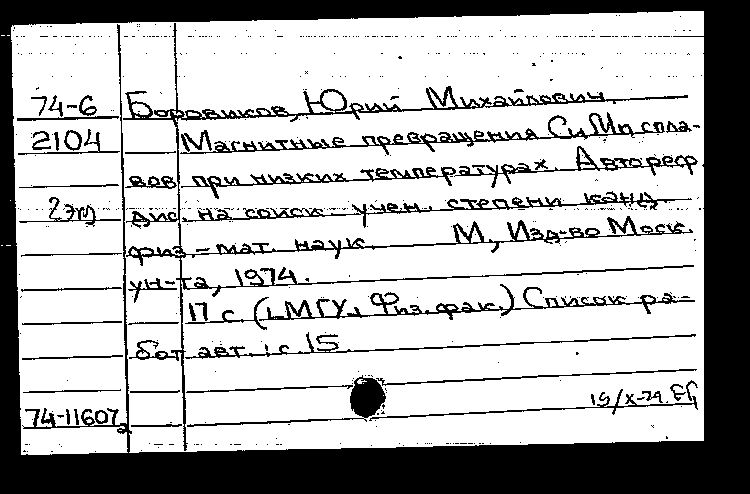 74-6 Боровиков, Юрий Михайлович.
2104 Магнитные превращения Cu Mn спла-
вов при низких температурах. Автореф.
2 экз дис. на соиск. учен. степени канд.
физ.-мат. наук. М., Изд-во Моск.
ун-та, 1974.
17 с. (МГУ, Физ. фак.) Список ра-
бот авт.: с. 15.
19/X-74.
74-11607